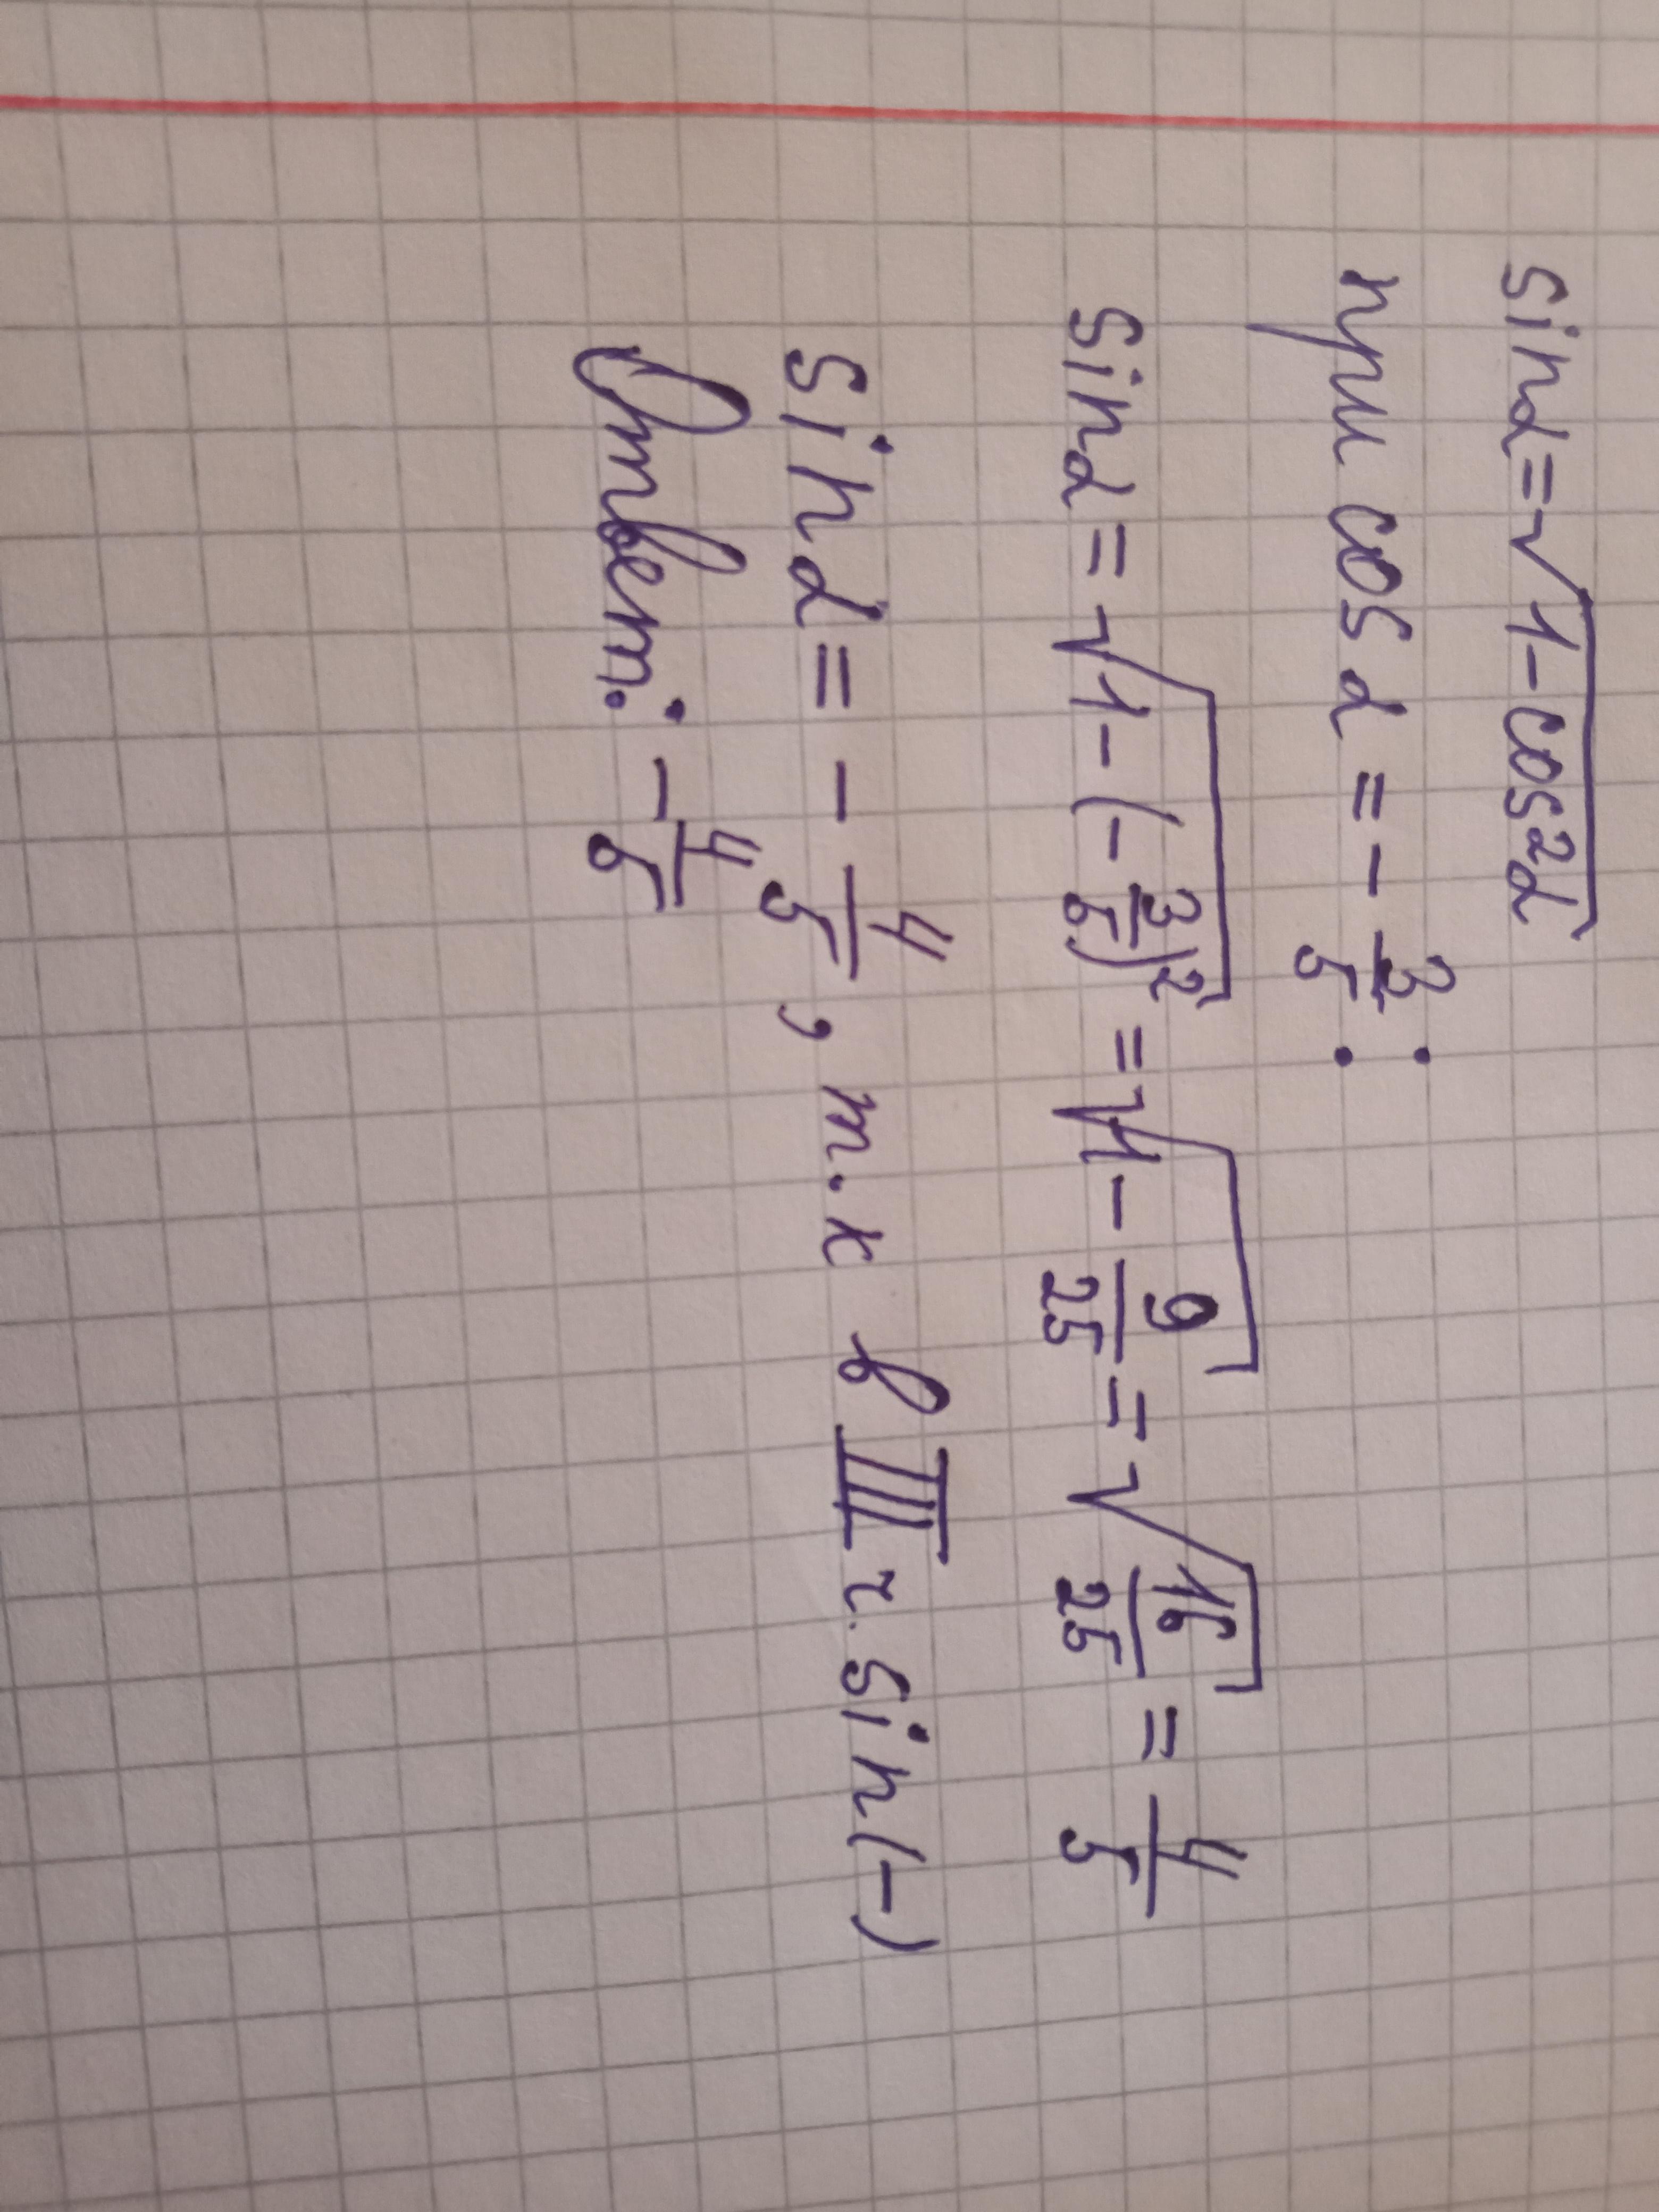 sinα=√1-cos²α
при cos α = - 3/5 :
sinα = √1-(-3/5)² = √1 - 9/25 = √16/25 = 4/5
sinα = - 4/5 , т.к в III ч. sin(-)
Ответ: - 4/5